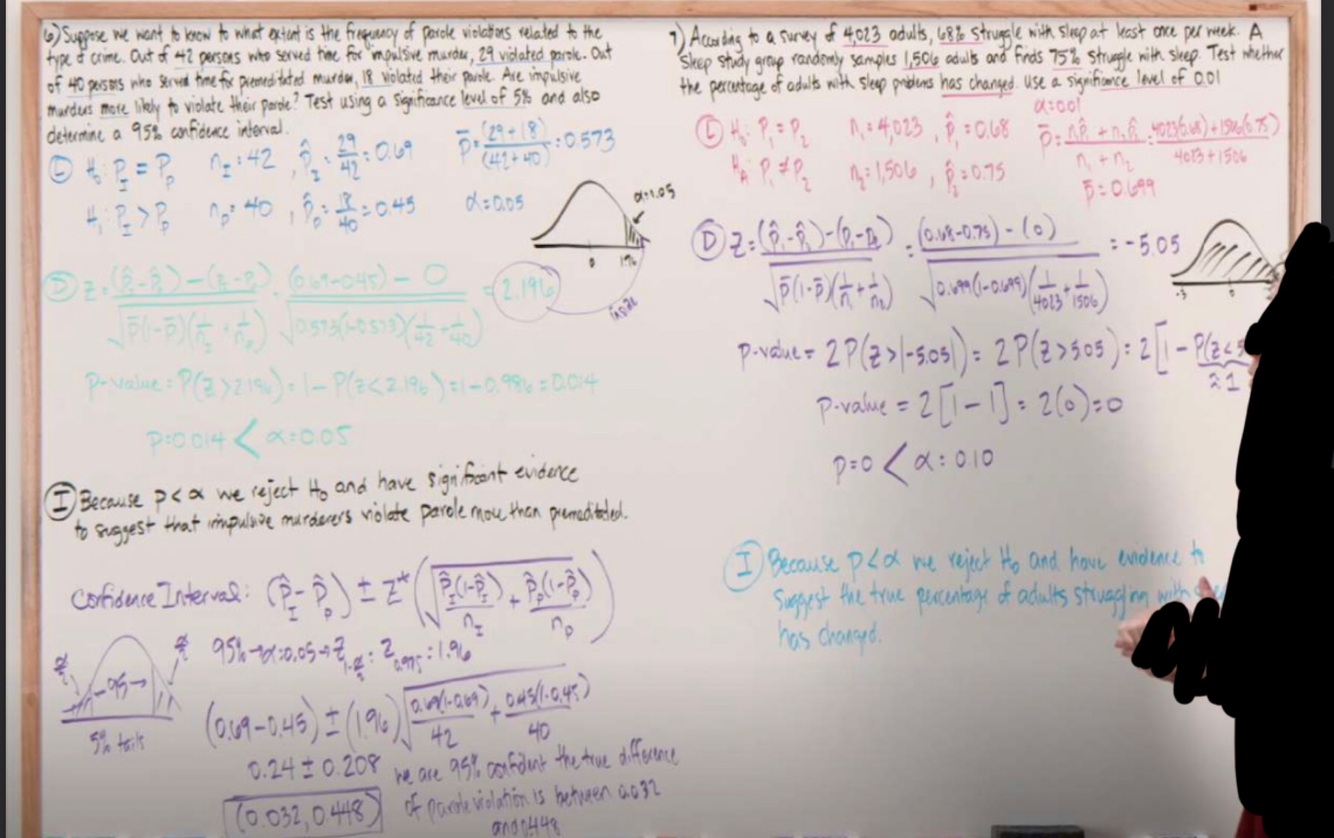 6) Suppose we want to know to what extent is the frequency of parole violations related to the
type of crime. Out of 42 persons who served time for impulsive murder, 29 violated parole. Out
of 40 persons who served time for premeditated murder, 18 violated their parole. Are impulsive
murders more likely to violate their parole? Test using a significance level of 5% and also
determine a 95% confidence interval.
H₀: P_I = P_p n_I = 42, p̂_I = 29/42 = 0.69 p̄ = (29+18)/(42+40) = 0.573
H₁: P_I > P_p n_p = 40, p̂_p = 18/40 = 0.45 α = 0.05
α = .05
0 1.96
D z = (p̂_I - p̂_p) - (P_I - P_p) / √(p̄(1-p̄)(1/n_I + 1/n_p)) = (0.69-0.45) - 0 / √(0.573(1-0.573)(1/42 + 1/40)) = 2.196
inside
P-value = P(z > 2.196) = 1 - P(z < 2.196) = 1 - 0.986 = 0.014
P = 0.014 < α = 0.05
I Because p < α we reject H₀ and have significant evidence
to suggest that impulsive murderers violate parole more than premeditated.
Confidence Interval: (p̂_I - p̂_p) ± z* (√(p̂_I(1-p̂_I)/n_I + p̂_p(1-p̂_p)/n_p))
95% → α = 0.05 → z_{1-α/2} = z_{0.975} = 1.96
α/2 α/2
←95→
5% tails
(0.69 - 0.45) ± (1.96) √(0.69(1-0.69)/42 + 0.45(1-0.45)/40)
0.24 ± 0.208
(0.032, 0.448)
we are 95% confident the true difference
of parole violation is between 0.032
and 0.448
7) According to a survey of 4,023 adults, 68% struggle with sleep at least once per week. A
sleep study group randomly samples 1,506 adults and finds 75% struggle with sleep. Test whether
the percentage of adults with sleep problems has changed. Use a significance level of 0.01
α = 0.01
H₀: P₁ = P₂ n₁ = 4,023, p̂₁ = 0.68 p̄ = n₁p̂₁ + n₂p̂₂ / n₁ + n₂ = 4023(0.68) + 1506(0.75) / 4023 + 1506
H_A: P₁ ≠ P₂ n₂ = 1,506, p̂₂ = 0.75 p̄ = 0.699
D z = (p̂₁ - p̂₂) - (P₁ - P₂) / √(p̄(1-p̄)(1/n₁ + 1/n₂)) = (0.68-0.75) - (0) / √(0.699(1-0.699)(1/4023 + 1/1506)) = -5.05
-5 0
P-value = 2P(z > |-5.05|) = 2P(z > 5.05) = 2[1 - P(z < 5
≈ 1
P-value = 2[1 - 1] = 2(0) = 0
P = 0 < α = 0.10
I Because p < α we reject H₀ and have evidence to
suggest the true percentage of adults struggling with
has changed.